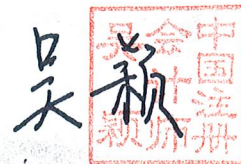 吴颖
中国注册
会计师
吴颖